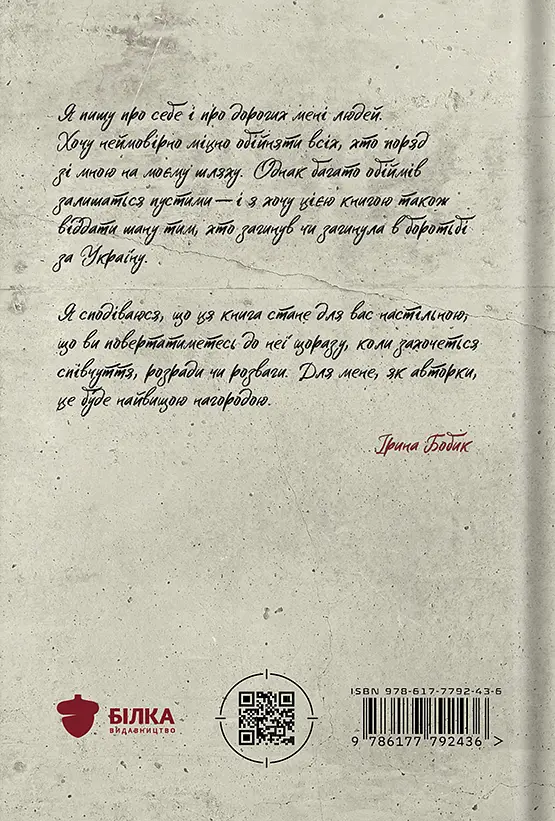 Я пишу про себе і про дорогих мені людей.
Хочу неймовірно міцно обійняти всіх, хто поряд
зі мною на моєму шляху. Однак багато обіймів
залишаться пустими — і я хочу цією книгою також
віддати шану тим, хто загинув чи загинула в боротьбі
за Україну.
Я сподіваюся, що ця книга стане для вас настільною,
що ви повертатиметесь до неї щоразу, коли захочеться
співчуття, розради чи розваги. Для мене, як авторки,
це буде найвищою нагородою.
Ірина Бобик
БІЛКА
ВИДАВНИЦТВО
ISBN 978-617-7792-43-6
9 786177 792436 >